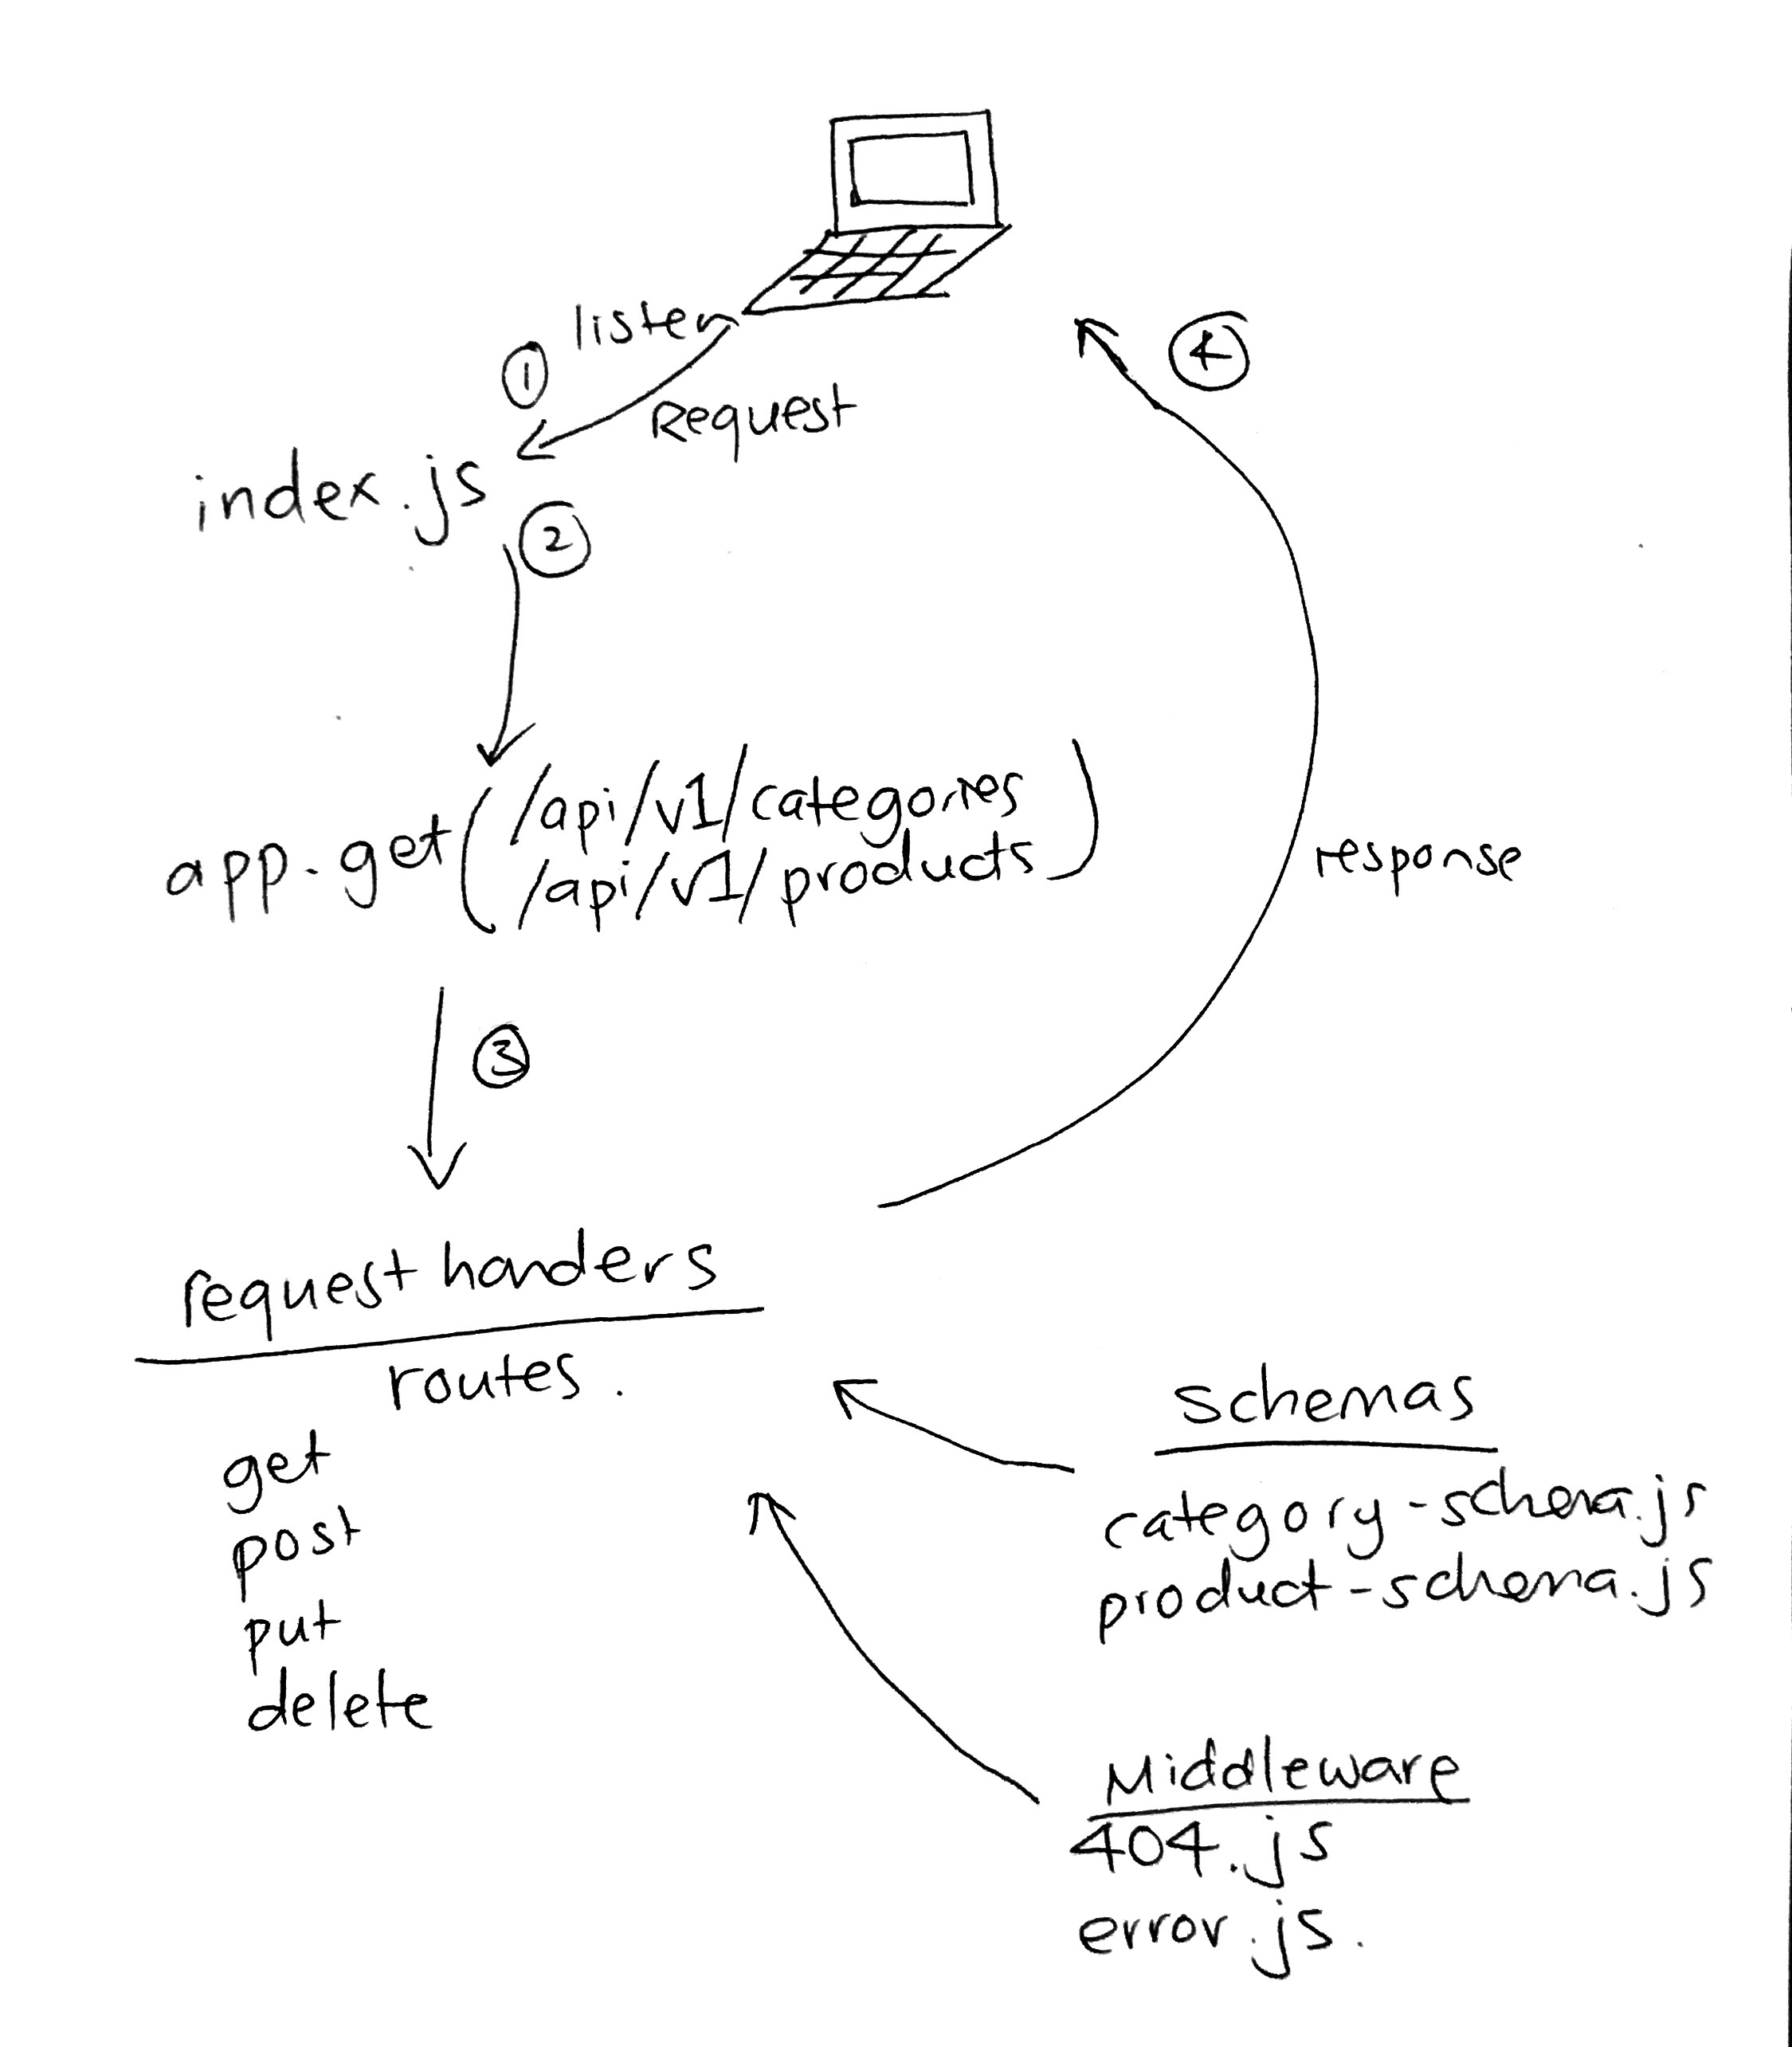 listen
①
Request
④
index.js
②
app.get(/api/v1/categories
/api/v1/products)
response
③
request handers
routes.
get
post
put
delete
Schemas
category-schema.js
product-schema.js
Middleware
404.js
error.js.